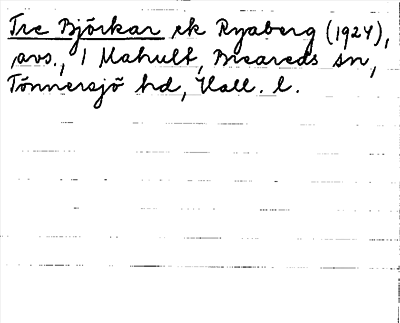 Tre Björkar ek Ryaberg (1924),
avs., 1 Mahult, Breareds sn,
Tönnersjö hd, Hall. l.